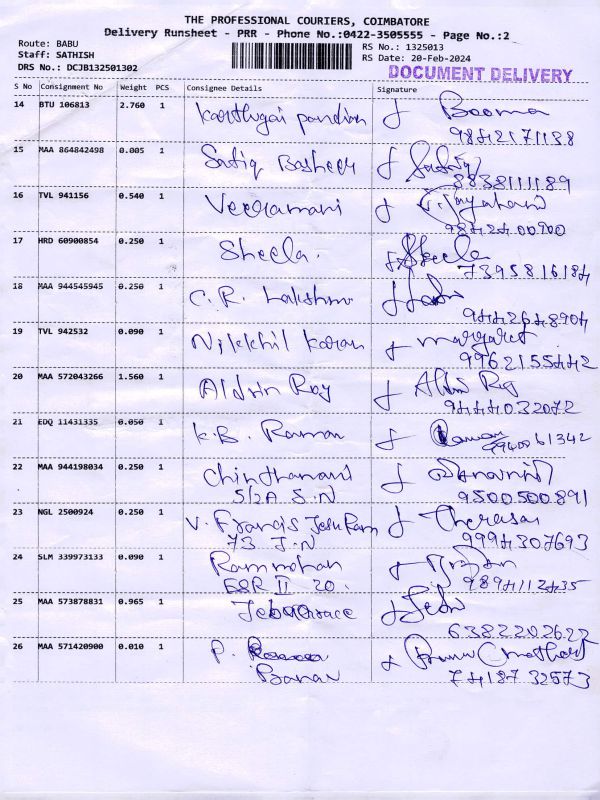 THE PROFESSIONAL COURIERS, COIMBATORE
Delivery Runsheet - PRR - Phone No.:0422-3505555 - Page No.:2
Route: BABU
Staff: SATHISH
DRS No.: DCJB132501302
RS No.: 1325013
RS Date: 20-Feb-2024
DOCUMENT DELIVERY
S No Consignment No Weight PCS Consignee Details Signature
14 BTU 106813 2.760 1 Karthigai pandian Booma
9842171138
15 MAA 864842498 0.005 1 Sadiq Basheer
8838111189
16 TVL 941156 0.540 1 Veeramani
9842400900
17 HRD 60900854 0.250 1 Sheela. Sheela
7395816184
18 MAA 944545945 0.250 1 C.R. Lakshmi
9442648904
19 TVL 942532 0.090 1 Nikkhil Karan margaret
9962155442
20 MAA 572043266 1.560 1 Aldrin Roy Aldrin Roy
9444032072
21 EDQ 11431335 0.050 1 K.B. Raman Raman
9940061342
22 MAA 944198034 0.250 1 Chinthamani
5/2A S.N
9500500891
23 NGL 2500924 0.250 1 V. Francis Jesu Ram Therasa
73 J.N
9994307693
24 SLM 339973133 0.090 1 Rammohan
ESR II 20.
9894112435
25 MAA 573878831 0.965 1 Jeba Grace Jebi
6382202622
26 MAA 571420900 0.010 1 P.
7418732573